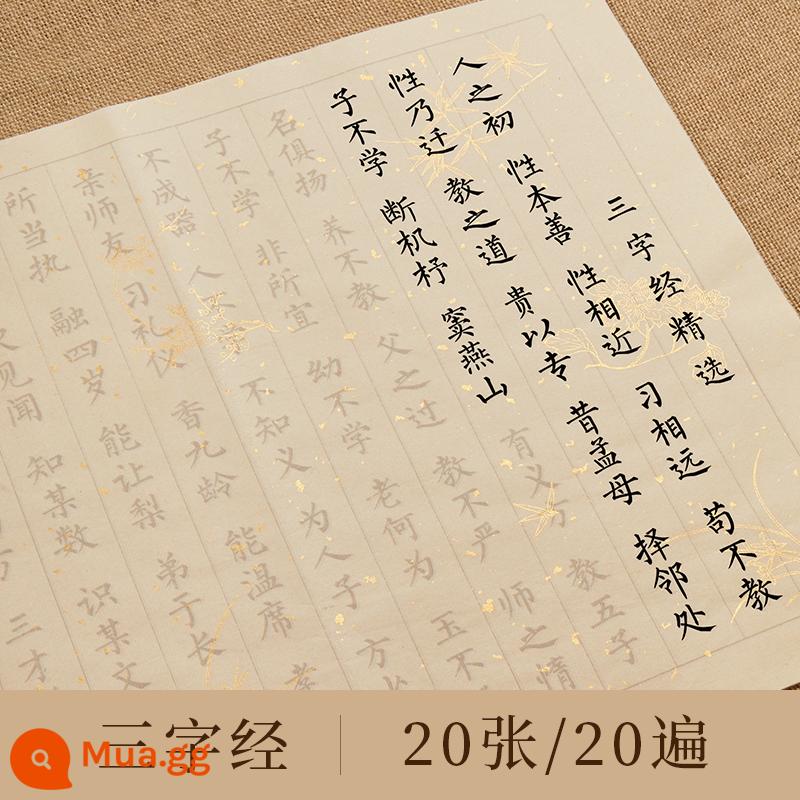 三字经精选
人之初 性本善 性相近 习相远 苟不教
性乃迁 教之道 贵以专 昔孟母 择邻处
子不学 断机杼 窦燕山 有义方 教五子
名俱扬 养不教 父之过 教不严 师之惰
子不学 非所宜 幼不学 老何为 玉不
不成器 人不学 不知义 为人子 方少
亲师友 习礼仪 香九龄 能温席 孝
所当执 融四岁 能让梨 弟于长
见闻 知某数 识某文
三才
三字经 20张/20遍
Mua.gg